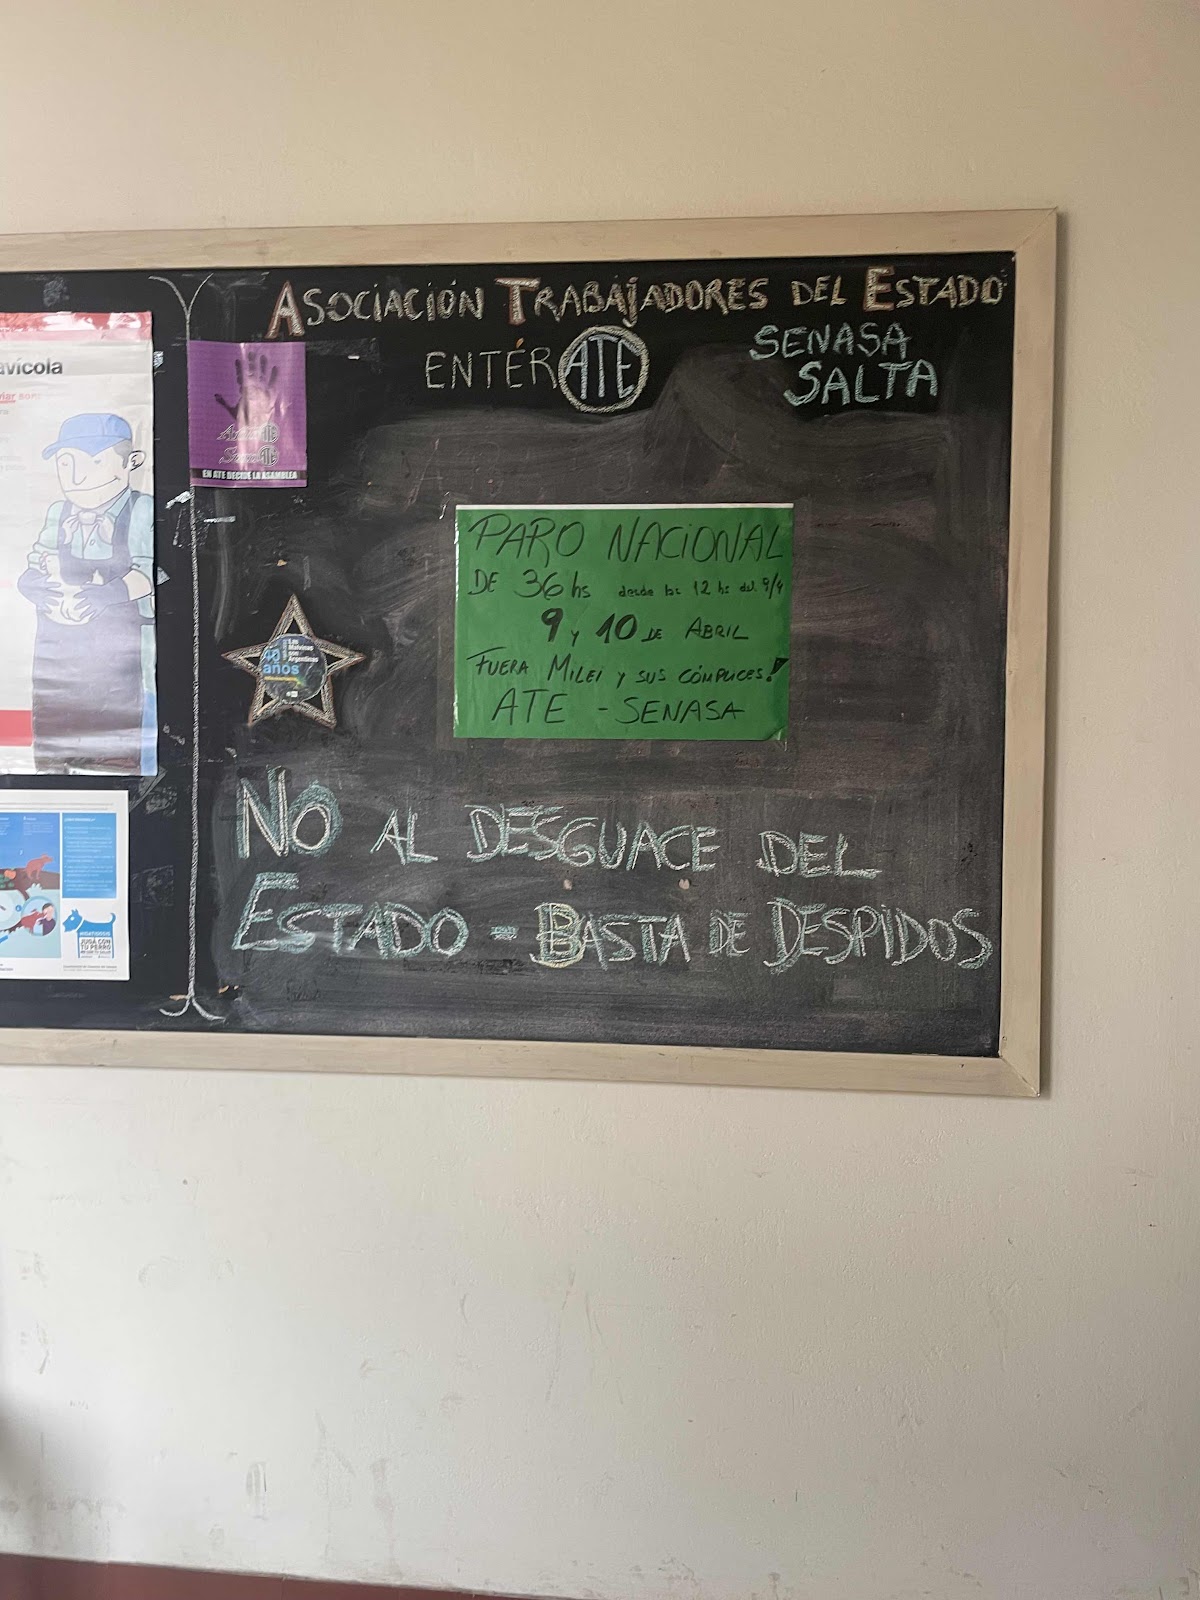 ASOCIACIÓN TRABAJADORES DEL ESTADO
ENTÉRATE
SENASA
SALTA
avícola
EN ATE DECIDE LA ASAMBLEA
PARO NACIONAL
DE 36 hs desde las 12 hs del 9/4
9 y 10 DE ABRIL
FUERA MILEI Y SUS CÓMPLICES!
ATE - SENASA
40 años
Las Malvinas son Argentinas
NO AL DESGUACE DEL
ESTADO - BASTA DE DESPIDOS
HIDATIDOSIS
JUGÁ CON
TU PERRO